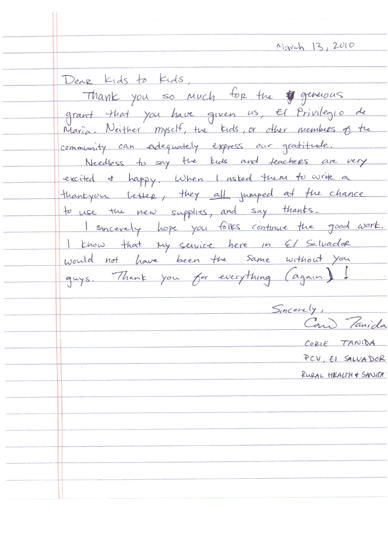 March 13, 2010
Dear Kids to Kids,
Thank you so much for the generous
grant that you have given us, El Privilegio de
Maria. Neither myself, the kids, or other members of the
community can adequately express our gratitude.
Needless to say the kids and teachers are very
excited & happy. When I asked them to write a
thankyou letter, they all jumped at the chance
to use the new supplies, and say thanks.
I sincerely hope you folks continue the good work.
I know that my service here in El Salvador
would not have been the same without you
guys. Thank you for everything (again)!
Sincerely,
Corie Tanida
CORIE TANIDA
PCV, El SALVADOR
RURAL HEALTH & SANITA